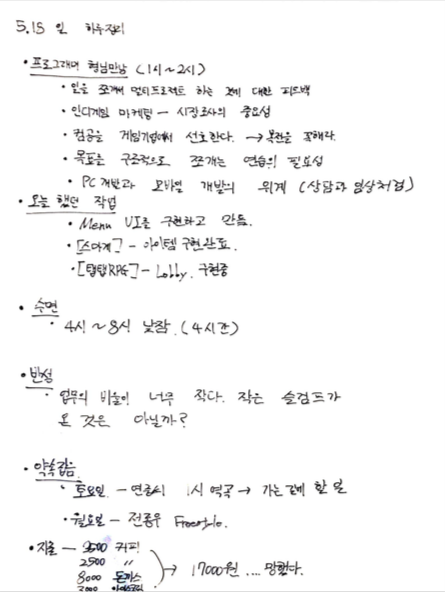 5.15 일 하루정리
• 프로그래머 형님만남 (1시~2시)
• 일을 쪼개서 멀티프로젝트 하는 것에 대한 피드백
• 인디게임 마케팅 - 시장조사의 중요성
• 컴공을 게임기업에서 선호한다. →
• 목표를 구조적으로 쪼개는 연습의 필요성
• PC 개발과 모바일 개발의 위계 (상남과 임상처럼)
• 오늘 했던 작업
• Menu UI를 구현하고 만듬.
• [스마게] - 아이템 구현완료.
• [탭탭RPG] - Lobby. 구현중
• 수면
• 4시~8시 낮잠. (4시간)
• 반성
• 업무의 비율이 너무 작다. 작은 슬럼프가
온 것은 아닐까?
• 약속잡음
• 토요일 - 1시 역곡 → 가는김에 할 일
• 월요일 - 전종우
• 지출 - 3500 커피
2500 〃
8000 돈까스
3000 아이스크림
→ 17000원 .... 망했다.